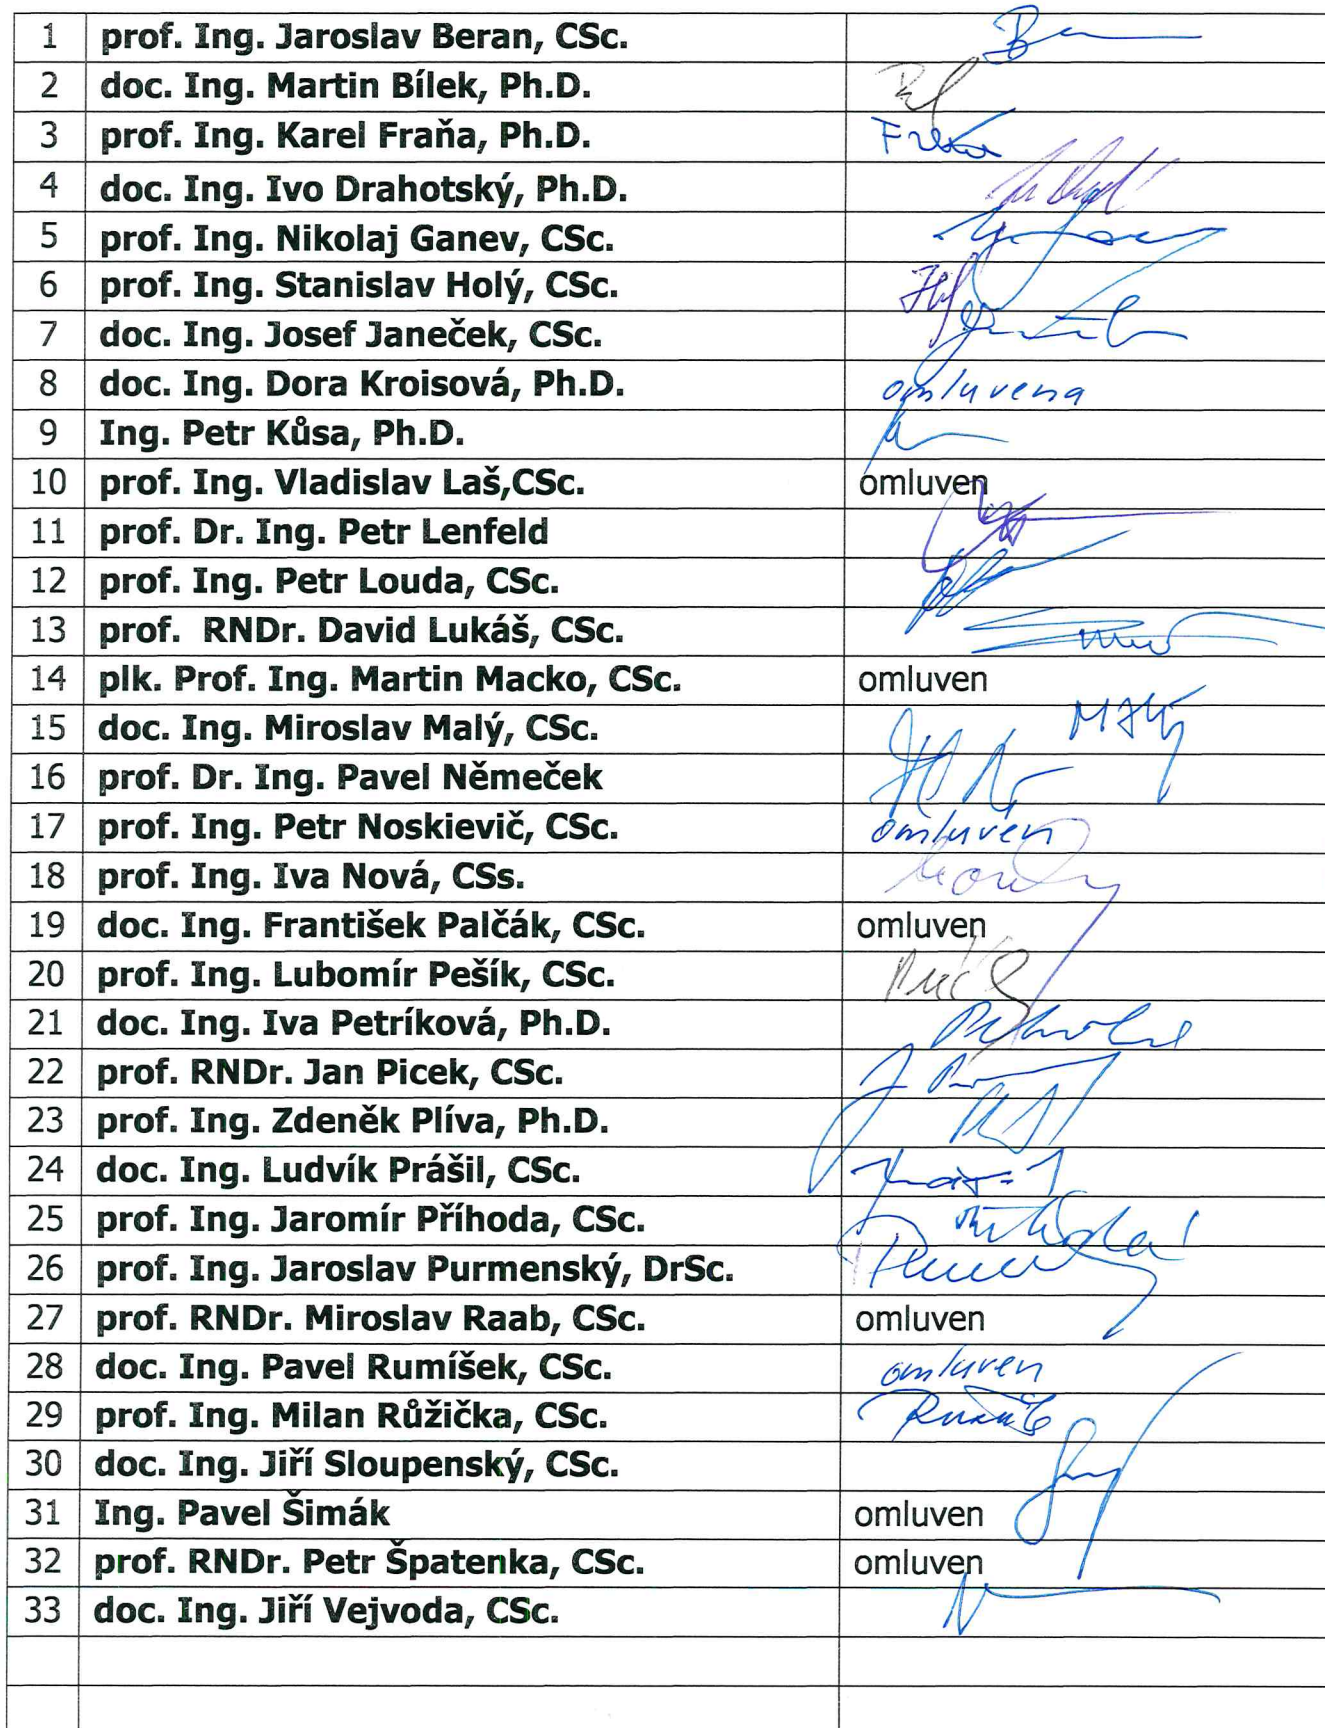 1 prof. Ing. Jaroslav Beran, CSc.
2 doc. Ing. Martin Bílek, Ph.D.
3 prof. Ing. Karel Fraňa, Ph.D.
4 doc. Ing. Ivo Drahotský, Ph.D.
5 prof. Ing. Nikolaj Ganev, CSc.
6 prof. Ing. Stanislav Holý, CSc.
7 doc. Ing. Josef Janeček, CSc.
8 doc. Ing. Dora Kroisová, Ph.D. omluvena
9 Ing. Petr Kůsa, Ph.D.
10 prof. Ing. Vladislav Laš,CSc. omluven
11 prof. Dr. Ing. Petr Lenfeld
12 prof. Ing. Petr Louda, CSc.
13 prof. RNDr. David Lukáš, CSc.
14 plk. Prof. Ing. Martin Macko, CSc. omluven
15 doc. Ing. Miroslav Malý, CSc.
16 prof. Dr. Ing. Pavel Němeček
17 prof. Ing. Petr Noskievič, CSc. omluven
18 prof. Ing. Iva Nová, CSs.
19 doc. Ing. František Palčák, CSc. omluven
20 prof. Ing. Lubomír Pešík, CSc.
21 doc. Ing. Iva Petríková, Ph.D.
22 prof. RNDr. Jan Picek, CSc.
23 prof. Ing. Zdeněk Plíva, Ph.D.
24 doc. Ing. Ludvík Prášil, CSc.
25 prof. Ing. Jaromír Příhoda, CSc.
26 prof. Ing. Jaroslav Purmenský, DrSc.
27 prof. RNDr. Miroslav Raab, CSc. omluven
28 doc. Ing. Pavel Rumíšek, CSc. omluven
29 prof. Ing. Milan Růžička, CSc.
30 doc. Ing. Jiří Sloupenský, CSc.
31 Ing. Pavel Šimák omluven
32 prof. RNDr. Petr Špatenka, CSc. omluven
33 doc. Ing. Jiří Vejvoda, CSc.